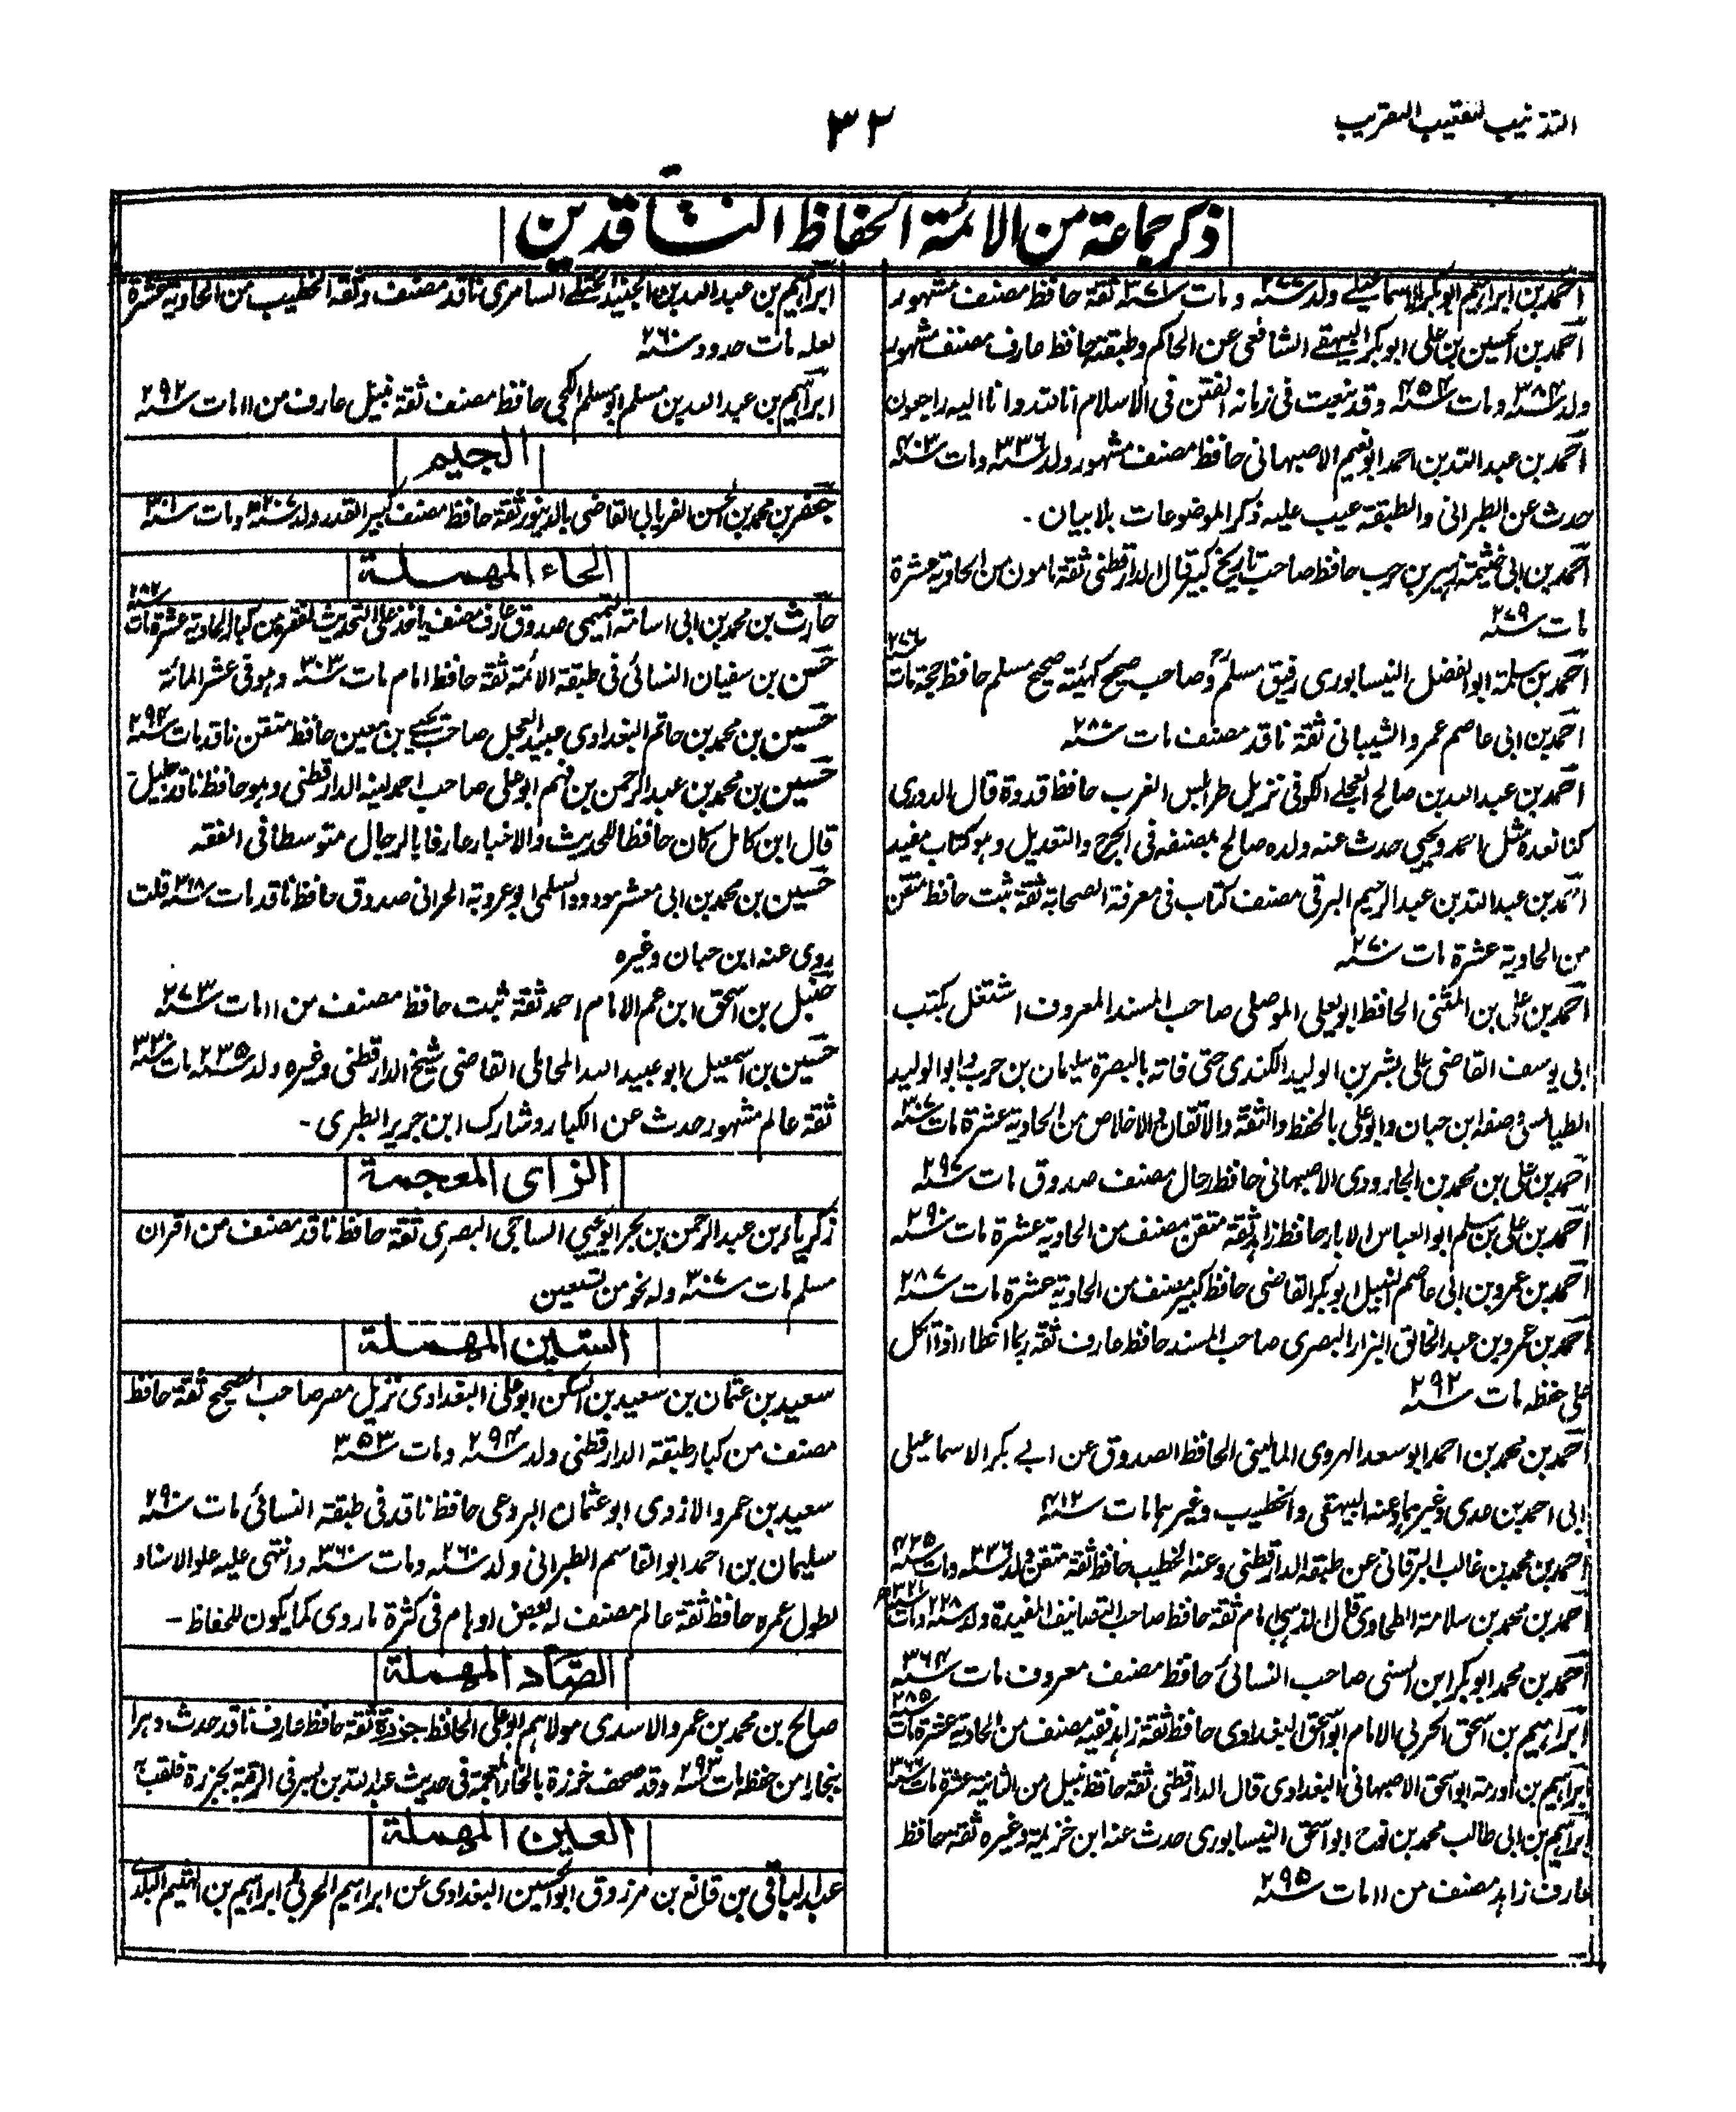 التذنيب لتعقيب التقريب
٣٢
ذكر جماعة من الائمة الحفاظ الناقدين
احمد بن ابراهيم ابوبكر الاسماعيلي ولد سنة ٢٧٧ ومات سنة ٣٧١ ثقة حافظ مصنف مشهور
احمد بن الحسين بن على ابوبكر البيهقي الشافعى عن الحاكم وطبقته حافظ عارف مصنف مشهور
ولد سنة ٣٨٤ ومات سنة ٤٥٨ وقد نبعت فى زمانه الفتن فى الاسلام انا لله وانا اليه راجعون
احمد بن عبد الله بن احمد ابونعيم الاصبهانى حافظ مصنف مشهور ولد سنة ٣٣٦ ومات سنة
حدث عن الطبرانى والطبقة عيب عليه ذكر الموضوعات بلا بيان .
احمد بن ابى خيثمة زهير بن حرب حافظ صاحب تاريخ كبير قال الدارقطنى ثقة مامون من الحادية عشرة
مات سنة ٢٧٩
احمد بن سلمة ابو الفضل النيسابورى رفيق مسلم وصاحب صحيح كهيئة صحيح مسلم حافظ حجة مات سنة
احمد بن ابى عاصم عمرو الشيبانى ثقة ناقد مصنف مات سنة ٢٨٧
احمد بن عبد الله بن صالح العجلي الكوفى نزيل طرابلس الغرب حافظ قدوة قال الدورى
كنا نعده مثل احمد ويحيى حدث عنه ولده صالح بمصنفه فى الجرح والتعديل وهو كتاب مفيد
احمد بن عبد الله بن عبد الرحيم البرقى مصنف كتاب فى معرفة الصحابة ثقة ثبت حافظ متقن
من الحادية عشرة مات سنة ٢٧٠
احمد بن على بن المثنى الحافظ ابويعلى الموصلى صاحب المسند المعروف اشتغل بكتب
ابى يوسف القاضى على بشر بن الوليد الكندى حتى فاته بالبصرة سليمان بن حرب وابو الوليد
الطيالسى وصفه ابن حبان وابو على بالحفظ والثقة والاتقان والاخلاص من الحادية عشرة مات سنة ٣٠٧
احمد بن على بن محمد بن الجارودى الاصبهانى حافظ رحال مصنف صدوق مات سنة ٢٩٧
احمد بن على بن مسلم ابو العباس الابار حافظ زاهد ثقة متقن مصنف من الحادية عشرة مات سنة ٢٩٠
احمد بن عمرو بن ابى عاصم النبيل ابوبكر القاضى حافظ كبير مصنف من الحادية عشرة مات سنة ٢٨٧
احمد بن عمرو بن عبد الخالق البزار البصرى صاحب المسند حافظ عارف ثقة ربما اخطا اذا اتكل
على حفظه مات سنة ٢٩٢
احمد بن محمد بن احمد ابوسعد الهروى المالينى الحافظ الصدوق عن ابي بكر الاسماعيلى
ابى احمد بن عدى وغيرهما وعنه البيهقى والخطيب وغيرهما مات سنة ٤١٢
احمد بن محمد بن غالب البرقانى عن طبقة الدارقطنى وعنه الخطيب حافظ ثقة متقن ولد سنة ٣٣٦ ومات سنة ٤٢٥
احمد بن محمد بن سلامة الطحاوى قال الذهبى امام ثقة حافظ صاحب التصانيف المفيدة ولد سنة ٢٢٨ ومات سنة ٣٢١
احمد بن محمد ابوبكر ابن السنى صاحب النسائى حافظ مصنف معروف مات سنة ٣٦٤
ابراهيم بن اسحق الحربى الامام ابو اسحق البغدادى حافظ ثقة زاهد فقيه مصنف من الحادية عشرة مات سنة ٢٨٥
ابراهيم بن اورمة ابو اسحق الاصبهانى البغدادى قال الدارقطنى ثقة حافظ نبيل من الثانية عشرة مات سنة
ابراهيم بن ابى طالب محمد بن نوح ابو اسحق النيسابورى حدث عنه ابن خزيمة وغيره ثقة حافظ
عارف زاهد مصنف من ١١ مات سنة ٢٩٥
ابراهيم بن عبد الله بن الجنيد الختلي السامرى ناقد مصنف وثقه الخطيب من الحادية عشرة
لعله مات حدود سنة ٢٦٠
ابراهيم بن عبد الله بن مسلم ابو مسلم الكجى حافظ مصنف ثقة نبيل عارف من ١١ مات سنة ٢٩٢
الجيم
جعفر بن محمد بن الحسن الفريابى القاضى بالدينور ثقة حافظ مصنف كبير القدر ولد سنة ٢٠٧ ومات سنة ٣٠١
الحاء المهملة
حارث بن محمد بن ابى اسامة التميمى صدوق عارف مصنف ياخذ على التحديث لفقره من كبار الحادية عشرة مات سنة ٢٨٢
حسن بن سفيان النسائى فى طبقة الائمة ثقة حافظ امام مات سنة ٣٠٣ وهو فى عشر المائة
حسين بن محمد بن حاتم البغدادى عبيد العجل صاحب يحيى بن معين حافظ متقن ناقد مات سنة ٢٩٤
حسين بن محمد بن عبد الرحمن بن فهم ابو على صاحب احمد لينه الدارقطنى وهو حافظ ناقد جليل
قال ابن كامل كان حافظا للحديث والاخبار عارفا بالرجال متوسطا فى الفقه
حسين بن محمد بن ابى معشر مودود السلمى ابو عروبة الحرانى صدوق حافظ ناقد مات سنة ٣١٨ قلت
روى عنه ابن حبان وغيره
حنبل بن اسحق ابن عم الامام احمد ثقة ثبت حافظ مصنف من ١١ مات سنة ٢٧٣
حسين بن اسمعيل ابو عبيد الله المحاملى القاضى شيخ الدارقطنى وغيره ولد سنة ٢٣٥ مات سنة ٣٣٠
ثقة عالم مشهور حدث عن الكبار وشارك ابن جرير الطبرى -
الزاى المعجمة
زكرياء بن عبد الرحمن بن بحر ابويحيى الساجى البصرى ثقة حافظ ناقد مصنف من اقران
مسلم مات سنة ٣٠٧ وله نحو من تسعين
السين المهملة
سعيد بن عثمان بن سعيد بن السكن ابو على البغدادى نزيل مصر صاحب الصحيح ثقة حافظ
مصنف من كبار طبقة الدارقطنى ولد سنة ٢٩٤ ومات سنة ٣٥٣
سعيد بن عمرو الازدى ابو عثمان البردعى حافظ ناقد فى طبقة النسائى مات سنة ٢٩٠
سليمان بن احمد ابو القاسم الطبرانى ولد سنة ٢٦٠ ومات سنة ٣٦٠ وانتهى عليه علو الاسناد
لطول عمره حافظ ثقة عالم مصنف له بعض اوهام فى كثرة ما روى كما يكون للحفاظ -
الصاد المهملة
صالح بن محمد بن عمرو الاسدى مولاهم ابو على الحافظ جزرة ثقة حافظ عارف ناقد حدث دهرا
ببخارا من حفظه مات سنة ٢٩٣ وقد صحف خرزة بالخاء المعجمة فى حديث عبد الله بن بسر فى الرقية بجزرة فلقب به
العين المهملة
عبد الباقى بن قانع بن مرزوق ابو الحسين البغدادى عن ابراهيم الحربى ابراهيم بن الهيثم البلدى